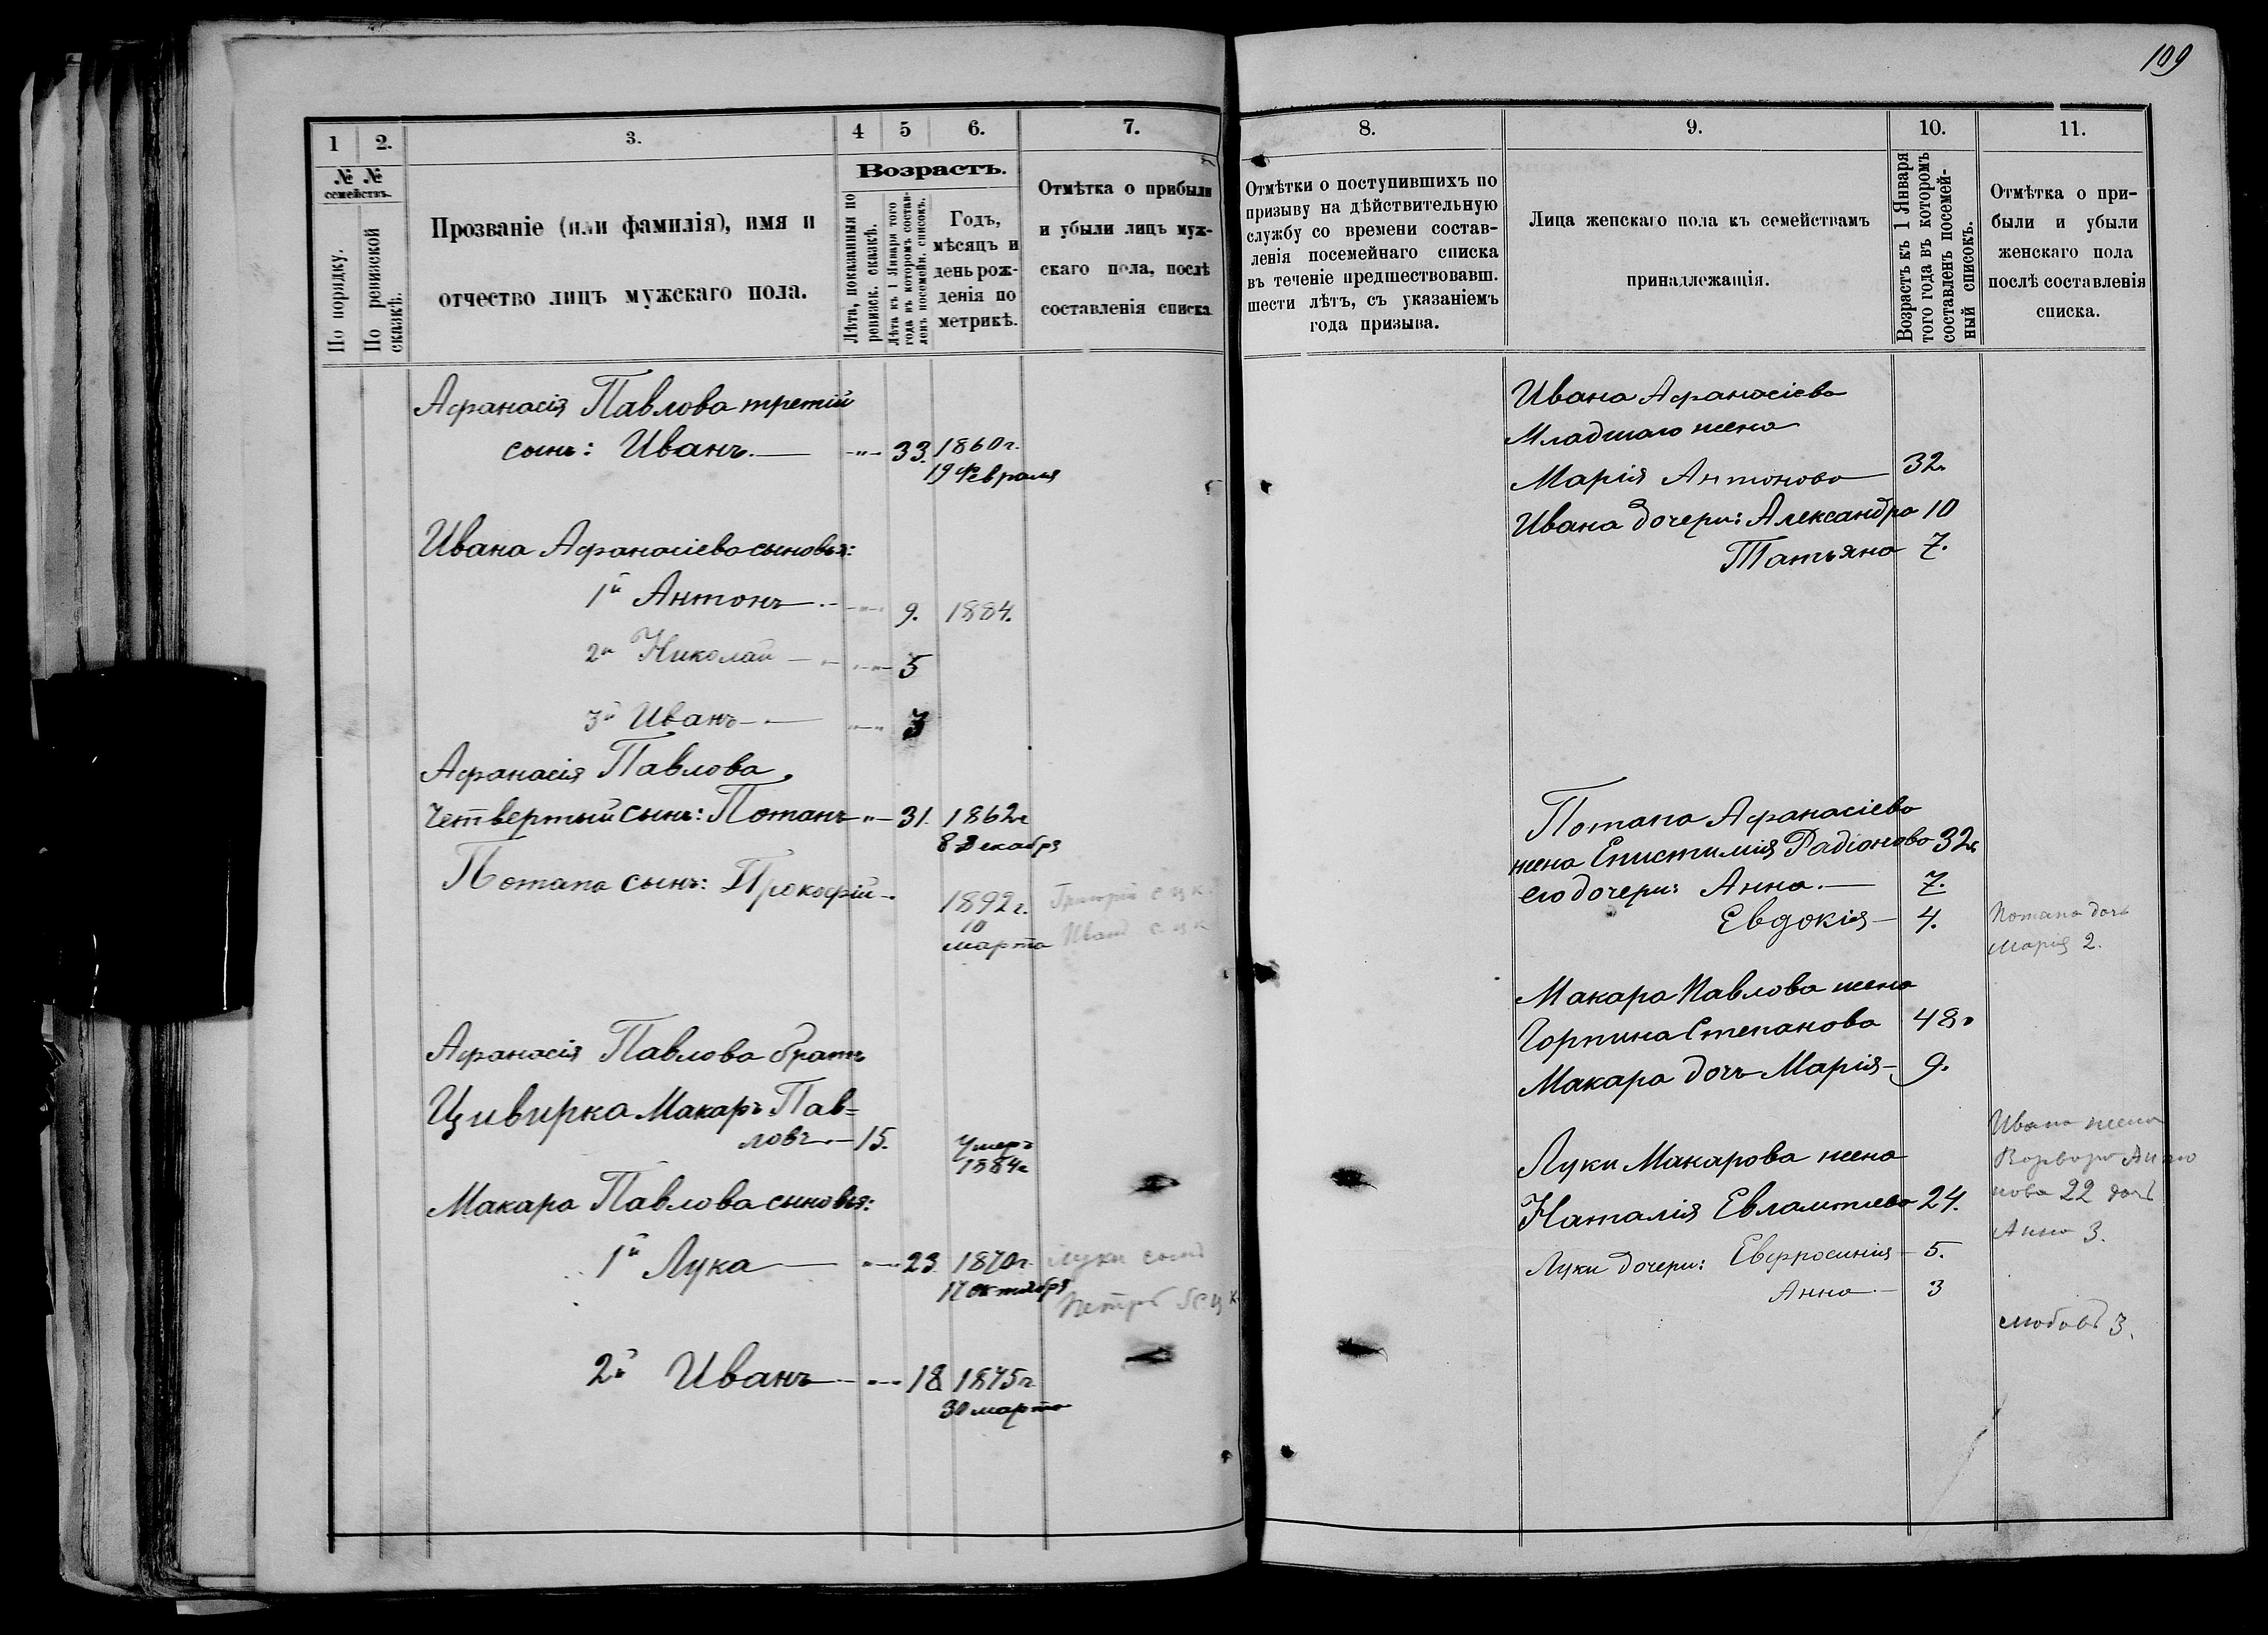 109
1
2.
3.
4
5
6.
7.
№ №
семействъ.
Возрастъ.
По порядку.
По ревизской
сказкѣ.
Прозваніе (или фамилія), имя и
отчество лицъ мужскаго пола.
Лѣта, показанныя по
ревизск. сказкѣ.
Лѣта къ 1 Января того
года въ которомъ состав-
ленъ посемейн. списокъ.
Годъ,
мѣсяцъ и
день рож-
денія по
метрикѣ.
Отмѣтка о прибыли
и убыли лицъ муж-
скаго пола, послѣ
составленія списка
Афанасія Павлова третій
сынъ: Иванъ. — -„- 33. 1860г.
19 Февраля
Ивана Афанасіева сыновья:
1й Антонъ -„- 9. 1884.
2й Николай — -„- 5
3й Иванъ — -„- 3
Афанасія Павлова
Четвертый сынъ: Потапъ -„- 31. 1862г
8 Декабря
Потапа сынъ: Прокофій - 1892 г.
10
марта
Григорій
Иванъ
Афанасія Павлова братъ
Цивирка Макаръ Пав=
ловъ — 15. Умеръ
1884г
Макара Павлова сыновья:
1й Лука — -„- 23. 1870г. Луки сынъ
17 октября
Петръ
2й Иванъ — -„- 18 1875г.
30 марта
8.
9.
10.
11.
Отмѣтки о поступившихъ по
призыву на дѣйствительную
службу со времени состав-
ленія посемейнаго списка
въ теченіе предшествовавш.
шести лѣтъ, съ указаніемъ
года призыва.
Лица женскаго пола къ семействамъ
принадлежащія.
Возрастъ къ 1 Января
того года въ которомъ
составленъ посемей-
ный списокъ.
Отмѣтка о при-
были и убыли
женскаго пола
послѣ составленія
списка.
Ивана Афанасіева
Младшаго жена
Марія Антонова — 32.
Ивана дочери: Александра 10
Татьяна 7.
Потапа Афанасіева
жена Епистимія Радіонова 32.
его дочери: Анна. — 7.
Евдокія — 4.
Потапа дочь
Марія 2.
Макара Павлова жена
Горпина Степанова 48.
Макара дочь Марія - 9.
Луки Макарова жена
Наталія Евлампіева 24.
Луки дочери: Евфросинія - 5.
Анна. - 3
Ивана жена
Варвара Анто
нова 22 дочь
Анна 3.
Любовь 3.